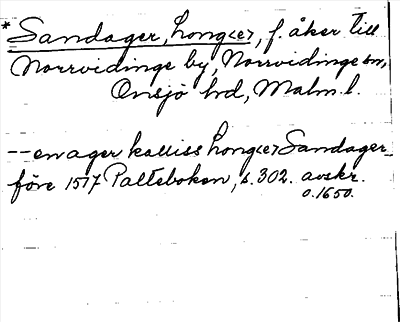 * Sandager, Long<e>, f. åker till
Norrvidinge by, Norrvidinge sn,
Onsjö hd, Malm. l.
-- en ager kalliss Long<e> Sandager
före 1517 Palteboken, s. 302. avskr.
o. 1650.